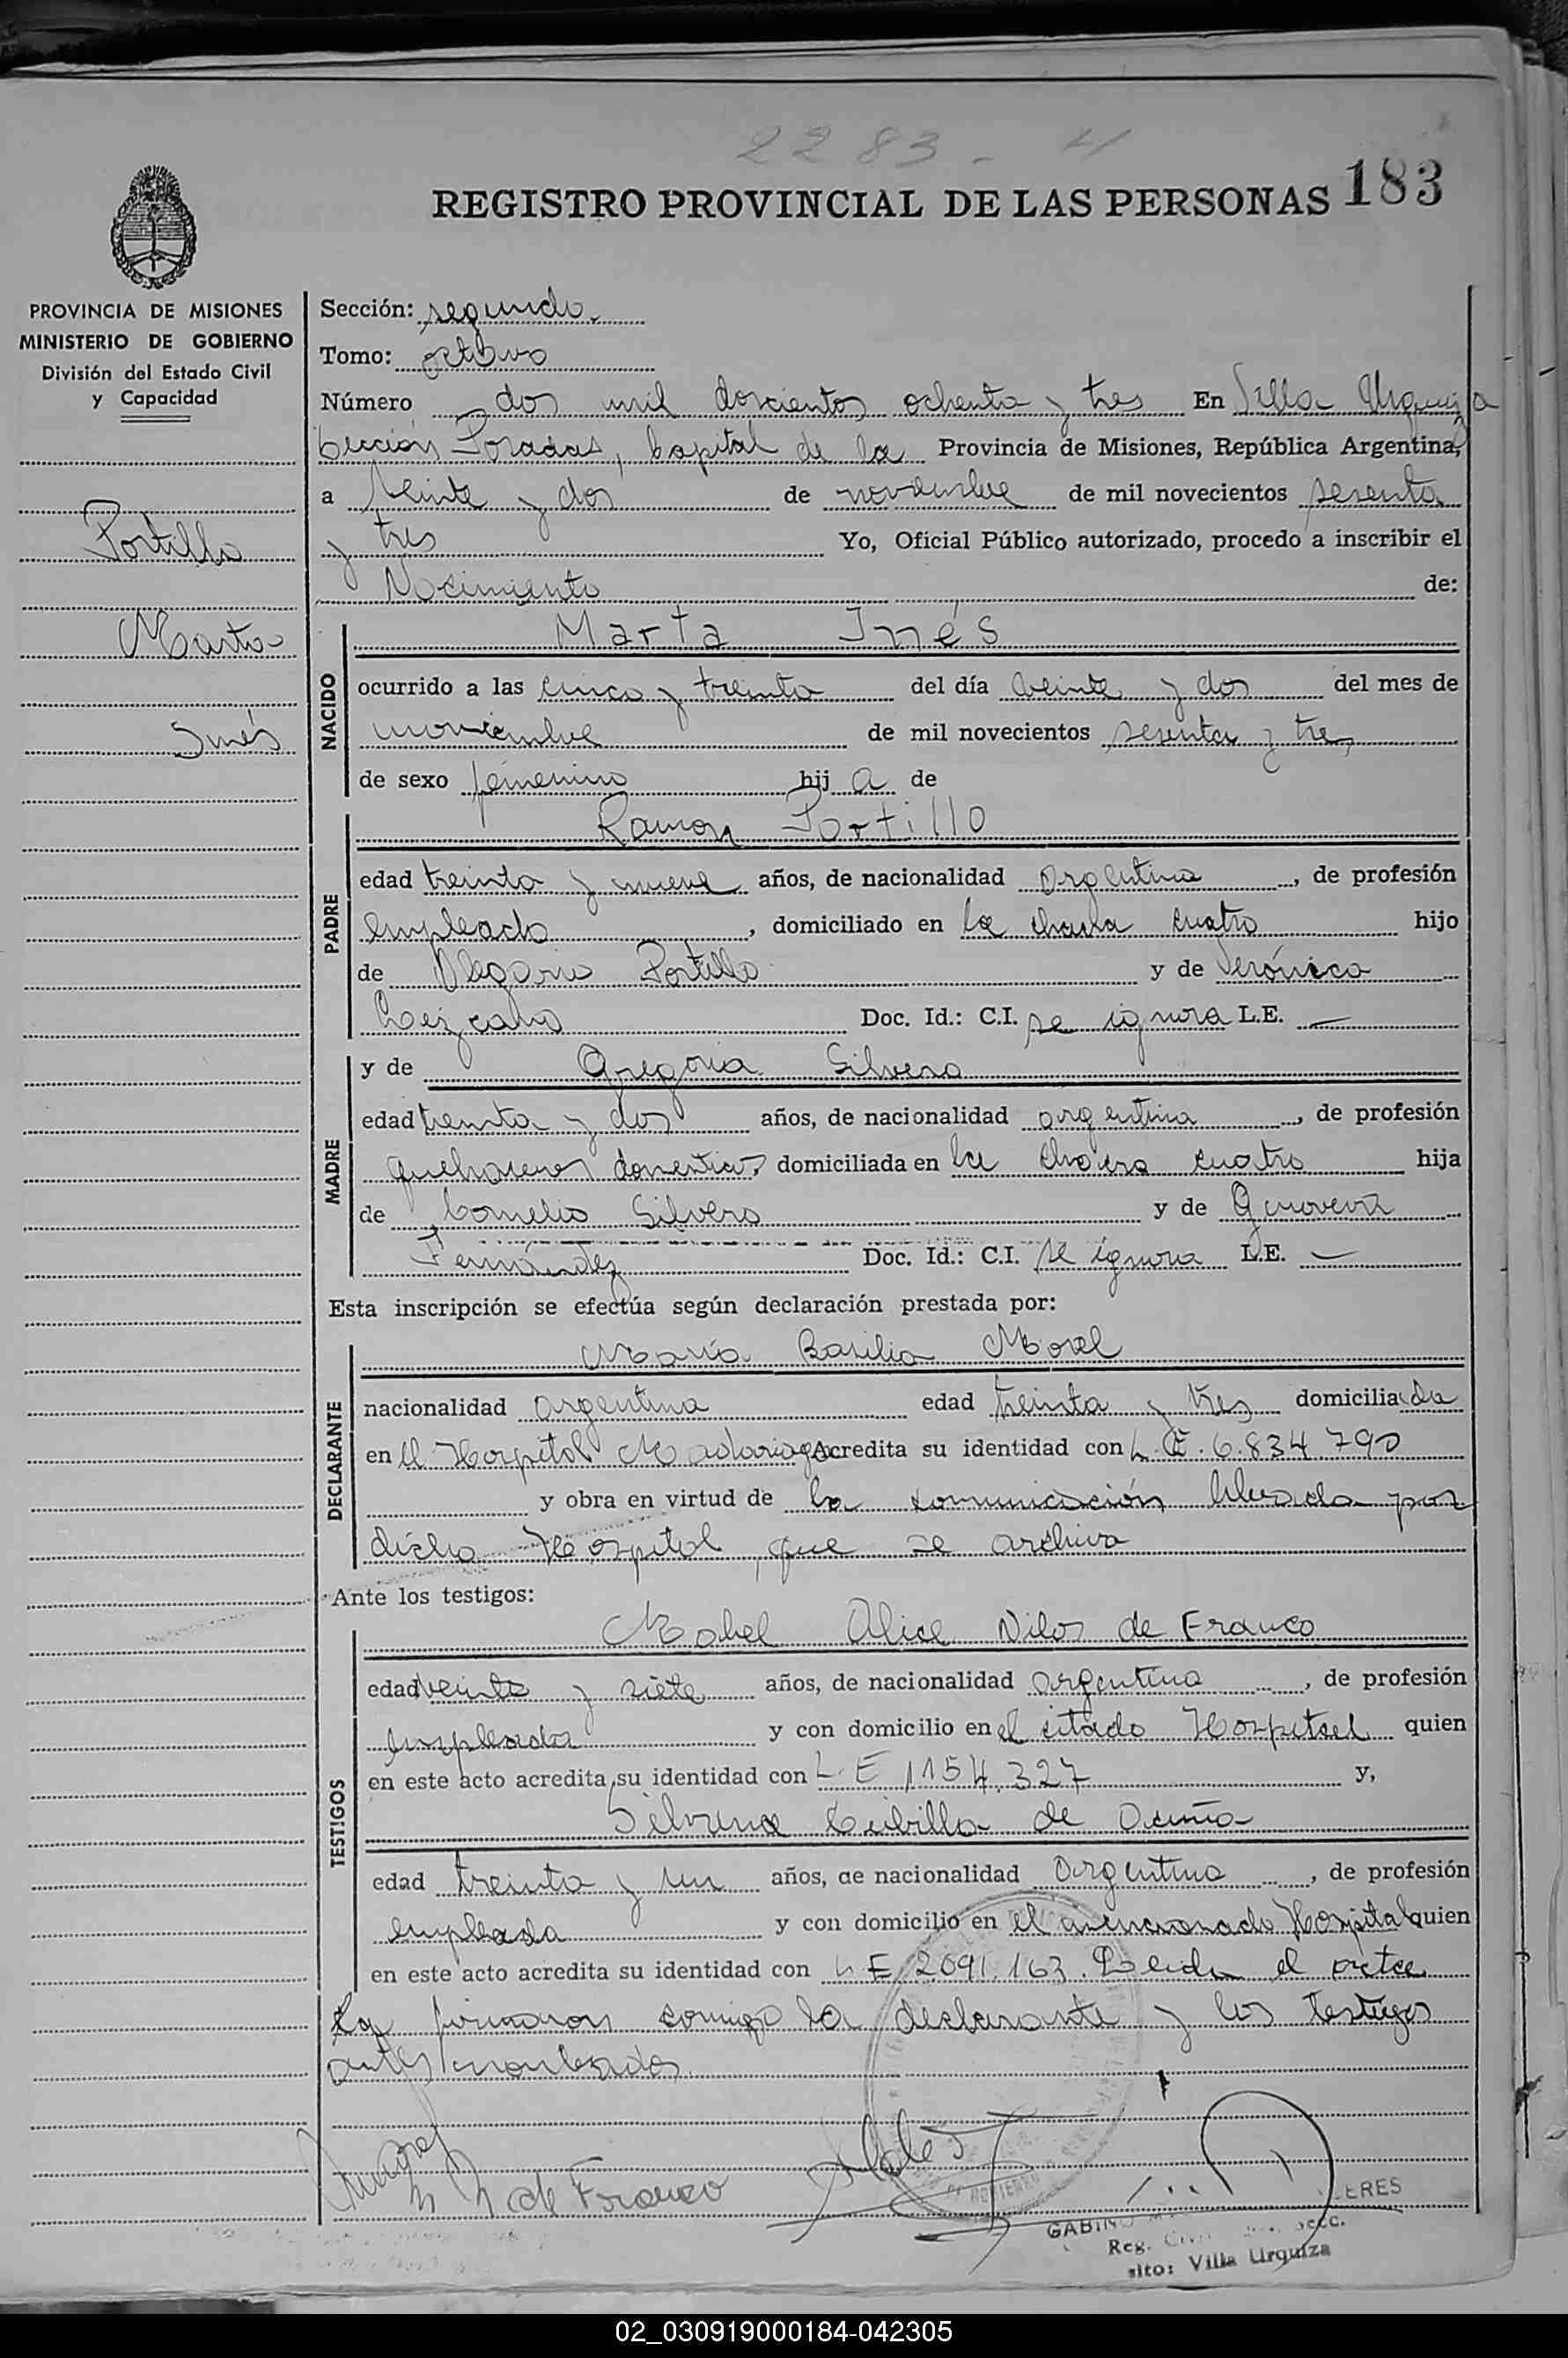 2283 -
REGISTRO PROVINCIAL DE LAS PERSONAS 183
PROVINCIA DE MISIONES
MINISTERIO DE GOBIERNO
División del Estado Civil
y Capacidad
Portillo
Marta
Inés
Sección: segunda
Tomo: octavo
Número dos mil doscientos ochenta y tres En Villa Urquiza
Sección Posadas, Capital de la Provincia de Misiones, República Argentina,
a veinte y dos de noviembre de mil novecientos sesenta
y tres Yo, Oficial Público autorizado, procedo a inscribir el
Nacimiento de:
NACIDO
Marta Inés
ocurrido a las cinco y treinta del día veinte y dos del mes de
noviembre de mil novecientos sesenta y tres
de sexo femenino hij a de
PADRE
Ramon Portillo
edad treinta y nueve años, de nacionalidad argentina, de profesión
empleado, domiciliado en la chacra cuatro hijo
de Olegario Portillo y de Verónica
Lezcano Doc. Id.: C.I. se ignora L.E. —
MADRE
y de Gregoria Silvero
edad treinta y dos años, de nacionalidad argentina, de profesión
quehaceres domesticos, domiciliada en la chacra cuatro hija
de Cornelio Silvero y de Genoveva
Fernández Doc. Id.: C.I. se ignora L.E. —
Esta inscripción se efectúa según declaración prestada por:
DECLARANTE
María Basilia Morel
nacionalidad argentina edad treinta y tres domicilia da
en el Hospital Madariaga Acredita su identidad con L.E. 6.834.790
y obra en virtud de la comunicación librada por
dicho Hospital, que se archiva
Ante los testigos:
TESTIGOS
Mabel Alice de Franco
edad veinte y siete años, de nacionalidad argentina, de profesión
empleada y con domicilio en el citado Hospital quien
en este acto acredita su identidad con L E 1154.327 y,
Silvena Cubilla de Acuña
edad treinta y un años, de nacionalidad argentina, de profesión
empleada y con domicilio en el mencionado Hospital quien
en este acto acredita su identidad con L E 2091.163. Leida el acta
la firmaron conmigo la declarante y los testigos
antes nombrados
de Franco
GABINO
Reg.
sito: Villa Urquiza
02_030919000184-042305